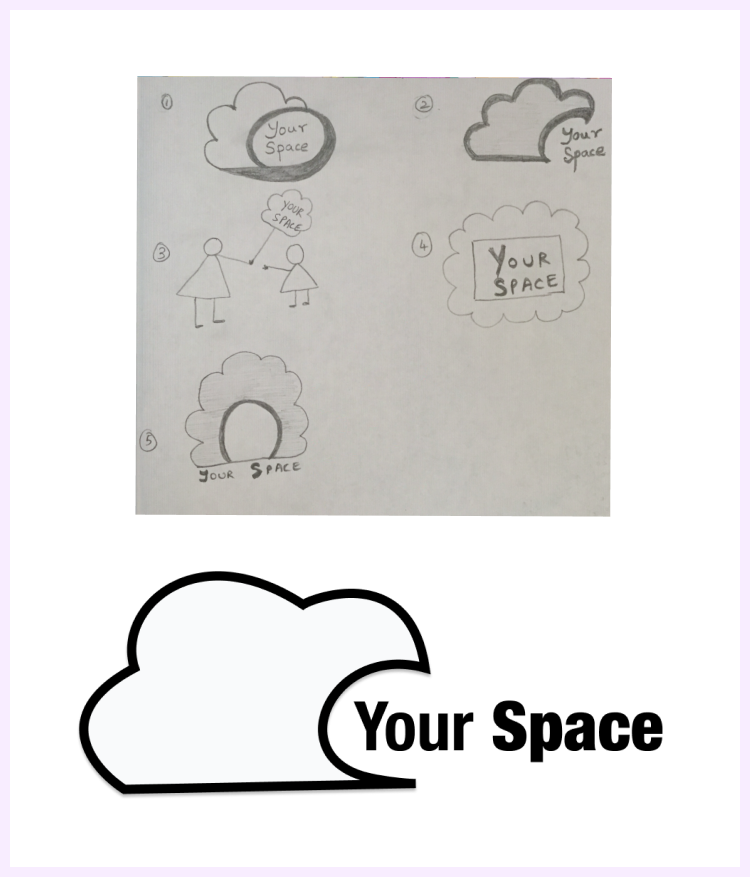 1
Your
Space
2
Your
Space
YOUR
SPACE
3
4
YOUR
SPACE
5
YOUR SPACE
Your Space